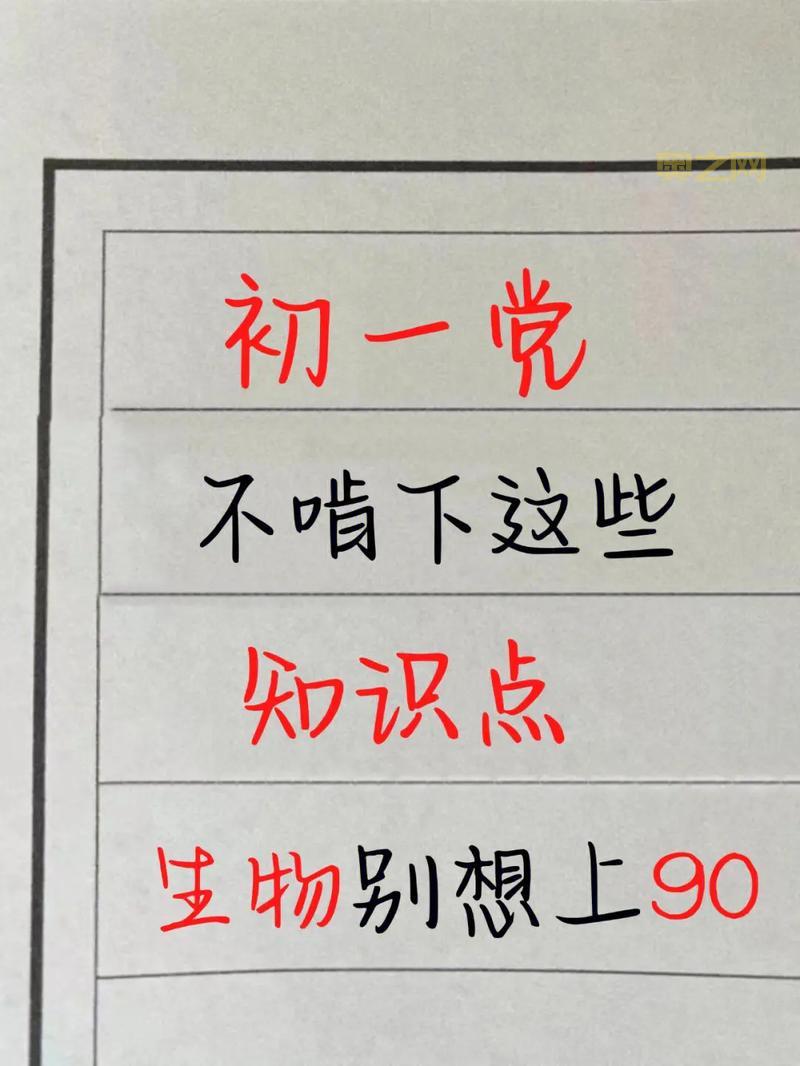 奥之网
初一党
不啃下这些
知识点
生物别想上90